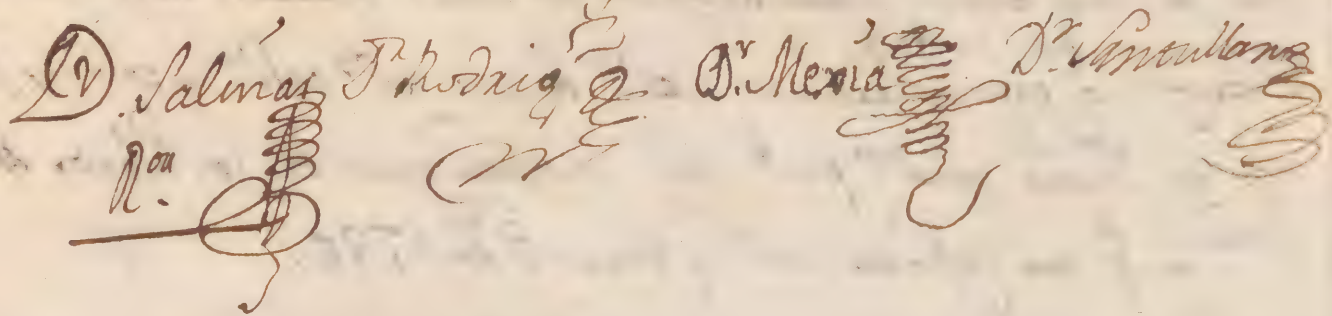 Dr. Salinas Dr Rodrigz Dr. Mexia Dr. Santullano
Ror.